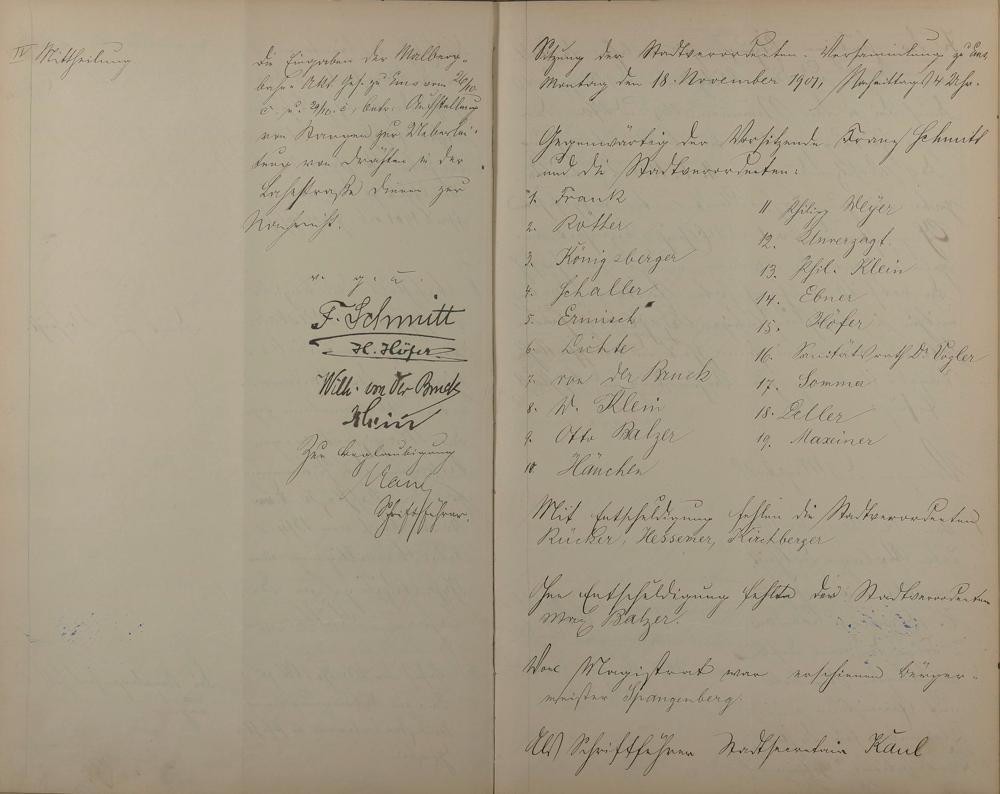 IV Mittheilung
die Eingaben der Malberg-
bahn Akt. Ges. zu Ems vom 26/10
c. u. 29/10. c., betr. Aufstellung
von Stangen zur Ueberlei-
tung von Drähten in der
Lahnstraße dienen zur
Nachricht.
v. g. u.
F. Schmitt
H. Höfer
Wilh. von der Bruck
Klein
Zur Beglaubigung
Kaul
Schriftführer.
Sitzung der Stadtverordneten-Versammlung zu Ems,
Montag den 18. November 1901, Nachmittags 4 Uhr.
Gegenwärtig der Vorsitzende Franz Schmitt
und die Stadtverordneten:
1. Frank
2. Rötter
3. Königsberger
4. Schaller
5. Ermisch
6. Lichte
7. von der Bruck
8. W. Klein
9. Otto Balzer
10. Hänchen
11 Philipp Meyer
12. Unverzagt.
13. Phil. Klein
14. Ebner
15. Höfer
16. Sanitätsrath Dr Vogler
17. Sommer
18. Leller
19. Maxeiner
Mit Entschuldigung fehlen die Stadtverordneten
Rücker, Hessemer, Kirchberger
Ohne Entschuldigung fehlte der Stadtverordneten
Max Balzer.
Vom Magistrat war erschienen Bürger-
meister Spangenberg.
Als Schriftführer Stadtsecretair Kaul